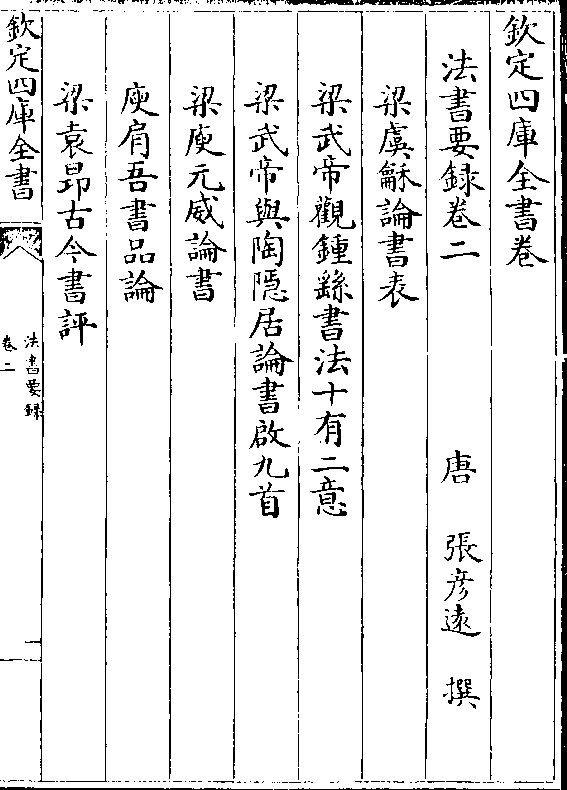 欽定四庫全書卷
法書要録卷二
唐 張彥遠 撰
梁虞龢論書表
梁武帝觀鍾繇書法十有二意
梁武帝與陶隱居論書啟九首
梁庾元威論書
庾肩吾書品論
梁袁昂古今書評
欽定四庫全書
法書要録
卷二
一